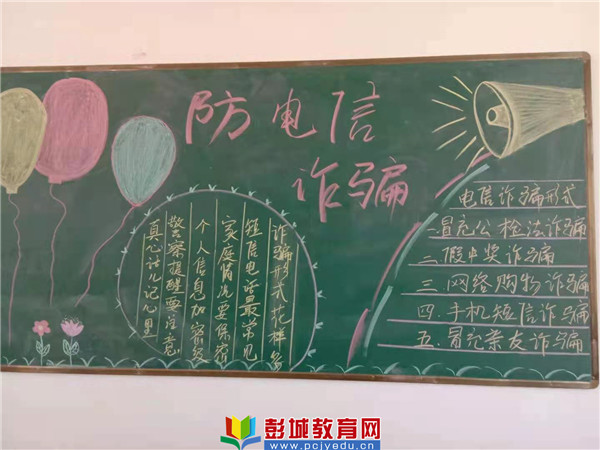 防电信
诈骗
诈骗形式花样多
短信电话最常见
家庭情况要保密
个人信息加密级
警察提醒要注意
真心计儿记心里
电信诈骗形式
一.冒充公检法诈骗
二.假中奖诈骗
三.网络购物诈骗
四.手机短信诈骗
五.冒充亲友诈骗
彭城教育网
www.pcjyedu.cn